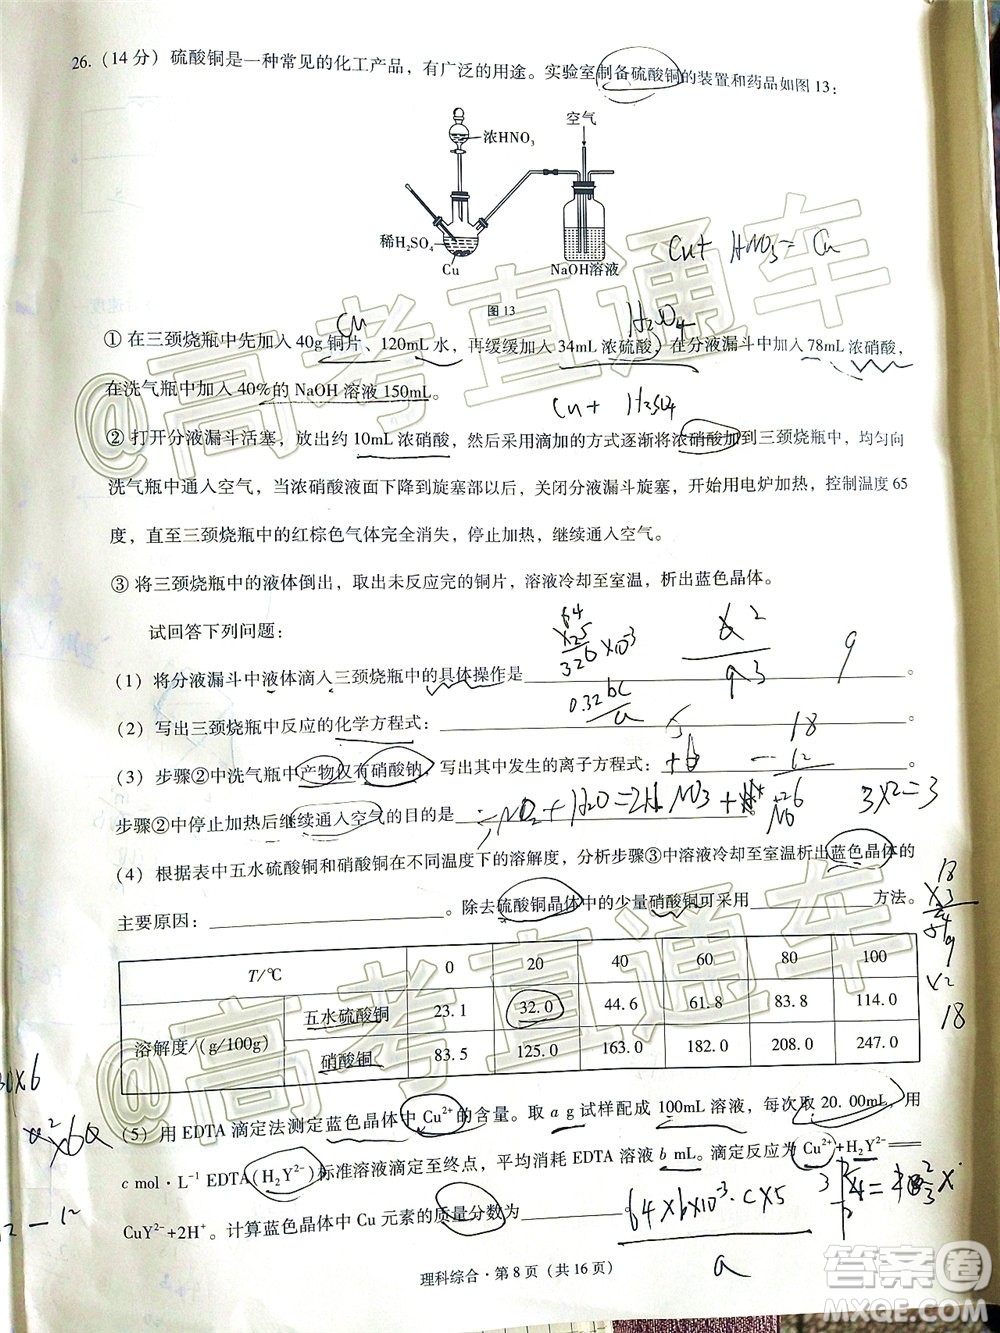 26.（14 分）硫酸铜是一种常见的化工产品，有广泛的用途。实验室制备硫酸铜的装置和药品如图 13：
空气
浓HNO₃
稀H₂SO₄
Cu
NaOH溶液
Cu+ HNO₃= Cu
图 13
Cu
H₂SO₄
① 在三颈烧瓶中先加入 40g 铜片、120mL 水，再缓缓加入 34mL 浓硫酸，在分液漏斗中加入 78mL 浓硝酸，
在洗气瓶中加入 40%的 NaOH 溶液 150mL。
Cu+ H₂SO₄
② 打开分液漏斗活塞，放出约 10mL 浓硝酸，然后采用滴加的方式逐渐将浓硝酸加到三颈烧瓶中，均匀向
洗气瓶中通入空气，当浓硝酸液面下降到旋塞部以后，关闭分液漏斗旋塞，开始用电炉加热，控制温度 65
度，直至三颈烧瓶中的红棕色气体完全消失，停止加热，继续通入空气。
③ 将三颈烧瓶中的液体倒出，取出未反应完的铜片，溶液冷却至室温，析出蓝色晶体。
试回答下列问题：
（1）将分液漏斗中液体滴入三颈烧瓶中的具体操作是。
（2）写出三颈烧瓶中反应的化学方程式：。
（3）步骤②中洗气瓶中产物仅有硝酸钠，写出其中发生的离子方程式：
步骤②中停止加热后继续通入空气的目的是。
3×2=3
（4）根据表中五水硫酸铜和硝酸铜在不同温度下的溶解度，分析步骤③中溶液冷却至室温析出蓝色晶体的
主要原因：。除去硫酸铜晶体中的少量硝酸铜可采用方法。
T/℃ 0 20 40 60 80 100
溶解度/(g/100g) 五水硫酸铜 23.1 32.0 44.6 61.8 83.8 114.0
硝酸铜 83.5 125.0 163.0 182.0 208.0 247.0
（5）用 EDTA 滴定法测定蓝色晶体中 Cu²⁺的含量。取 a g 试样配成 100mL 溶液，每次取 20.00mL，用
c mol·L⁻¹ EDTA（H₂Y²⁻）标准溶液滴定至终点，平均消耗 EDTA 溶液 b mL。滴定反应为 Cu²⁺+H₂Y²⁻══
CuY²⁻+2H⁺。计算蓝色晶体中 Cu 元素的质量分数为
64×b×10⁻³·c×5
a
理科综合·第 8 页（共 16 页）
@高考直通车
@高考直通车
答案圈
MXQE.COM